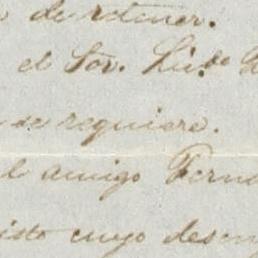 de retener.
el Sor.
se requiere.
el amigo Fern
isto cuyo desem